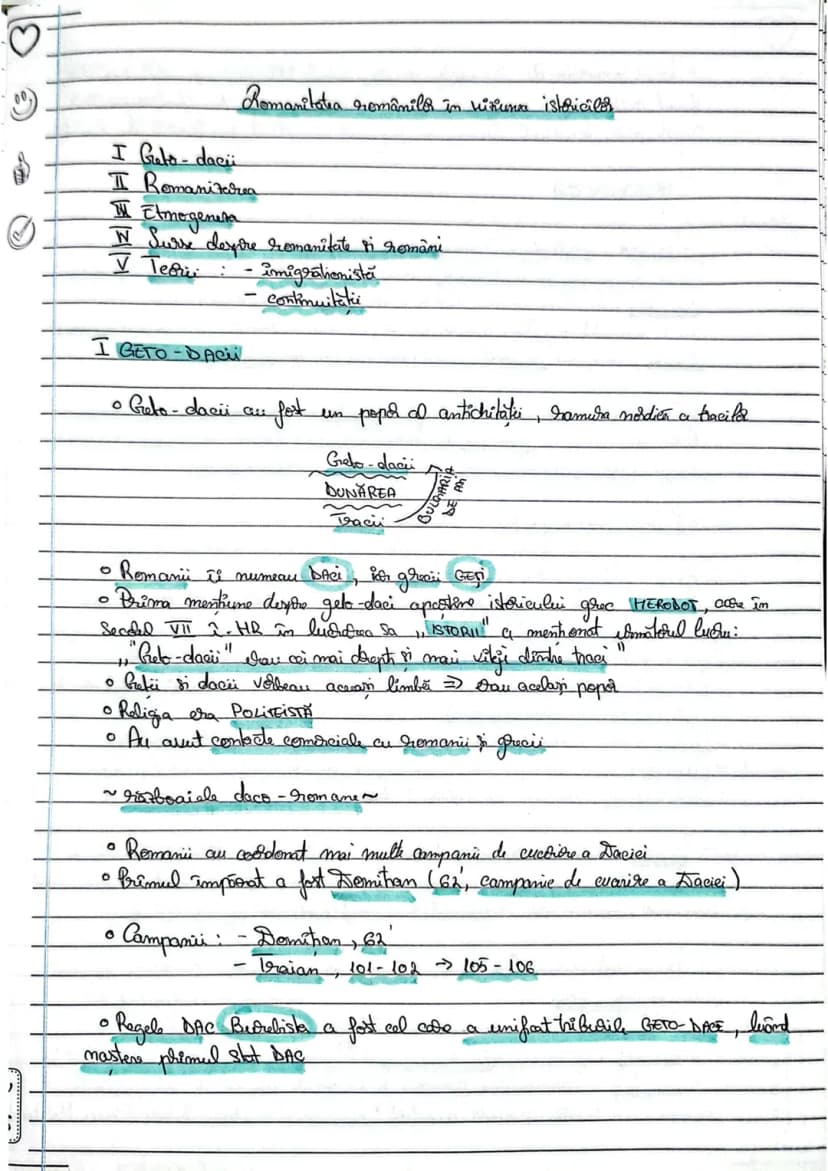 Romanitatea românilor în viziunea istoricilor
I Geto-dacii
II Romanizarea
III Etnogeneza
IV Surse despre romanitate și români
V Teorii : - imigraționistă
- continuității
I GETO-DACII
◦ Geto-dacii au fost un popor al antichității, ramura nordică a tracilor
Geto-dacii
DUNĂREA
Tracii
BULGARIA
DE AZI
◦ Romanii îi numeau DACI, iar grecii GEȚI
◦ Prima mențiune despre geto-daci aparține istoricului grec HERODOT, care în
Secolul VII î.HR în lucrarea sa „ISTORII" a menționat următorul lucru:
„Geto-dacii" erau cei mai drepți și mai viteji dintre traci"
◦ Geții și dacii vorbeau aceeași limbă => erau același popor
◦ Religia era POLITEISTĂ
◦ Au avut contacte comerciale cu romanii și grecii
~ războaiele daco-romane ~
◦ Romanii au coordonat mai multe campanii de cucerire a Daciei
◦ Primul împărat a fost Domițian (62', campanie de cucerire a Daciei)
◦ Campanii : - Domițian, 62'
- Traian, 101-102 → 105-106
◦ Regele DAC Burebista a fost cel care a unificat triburile GETO-DACE, luând
naștere primul stat DAC